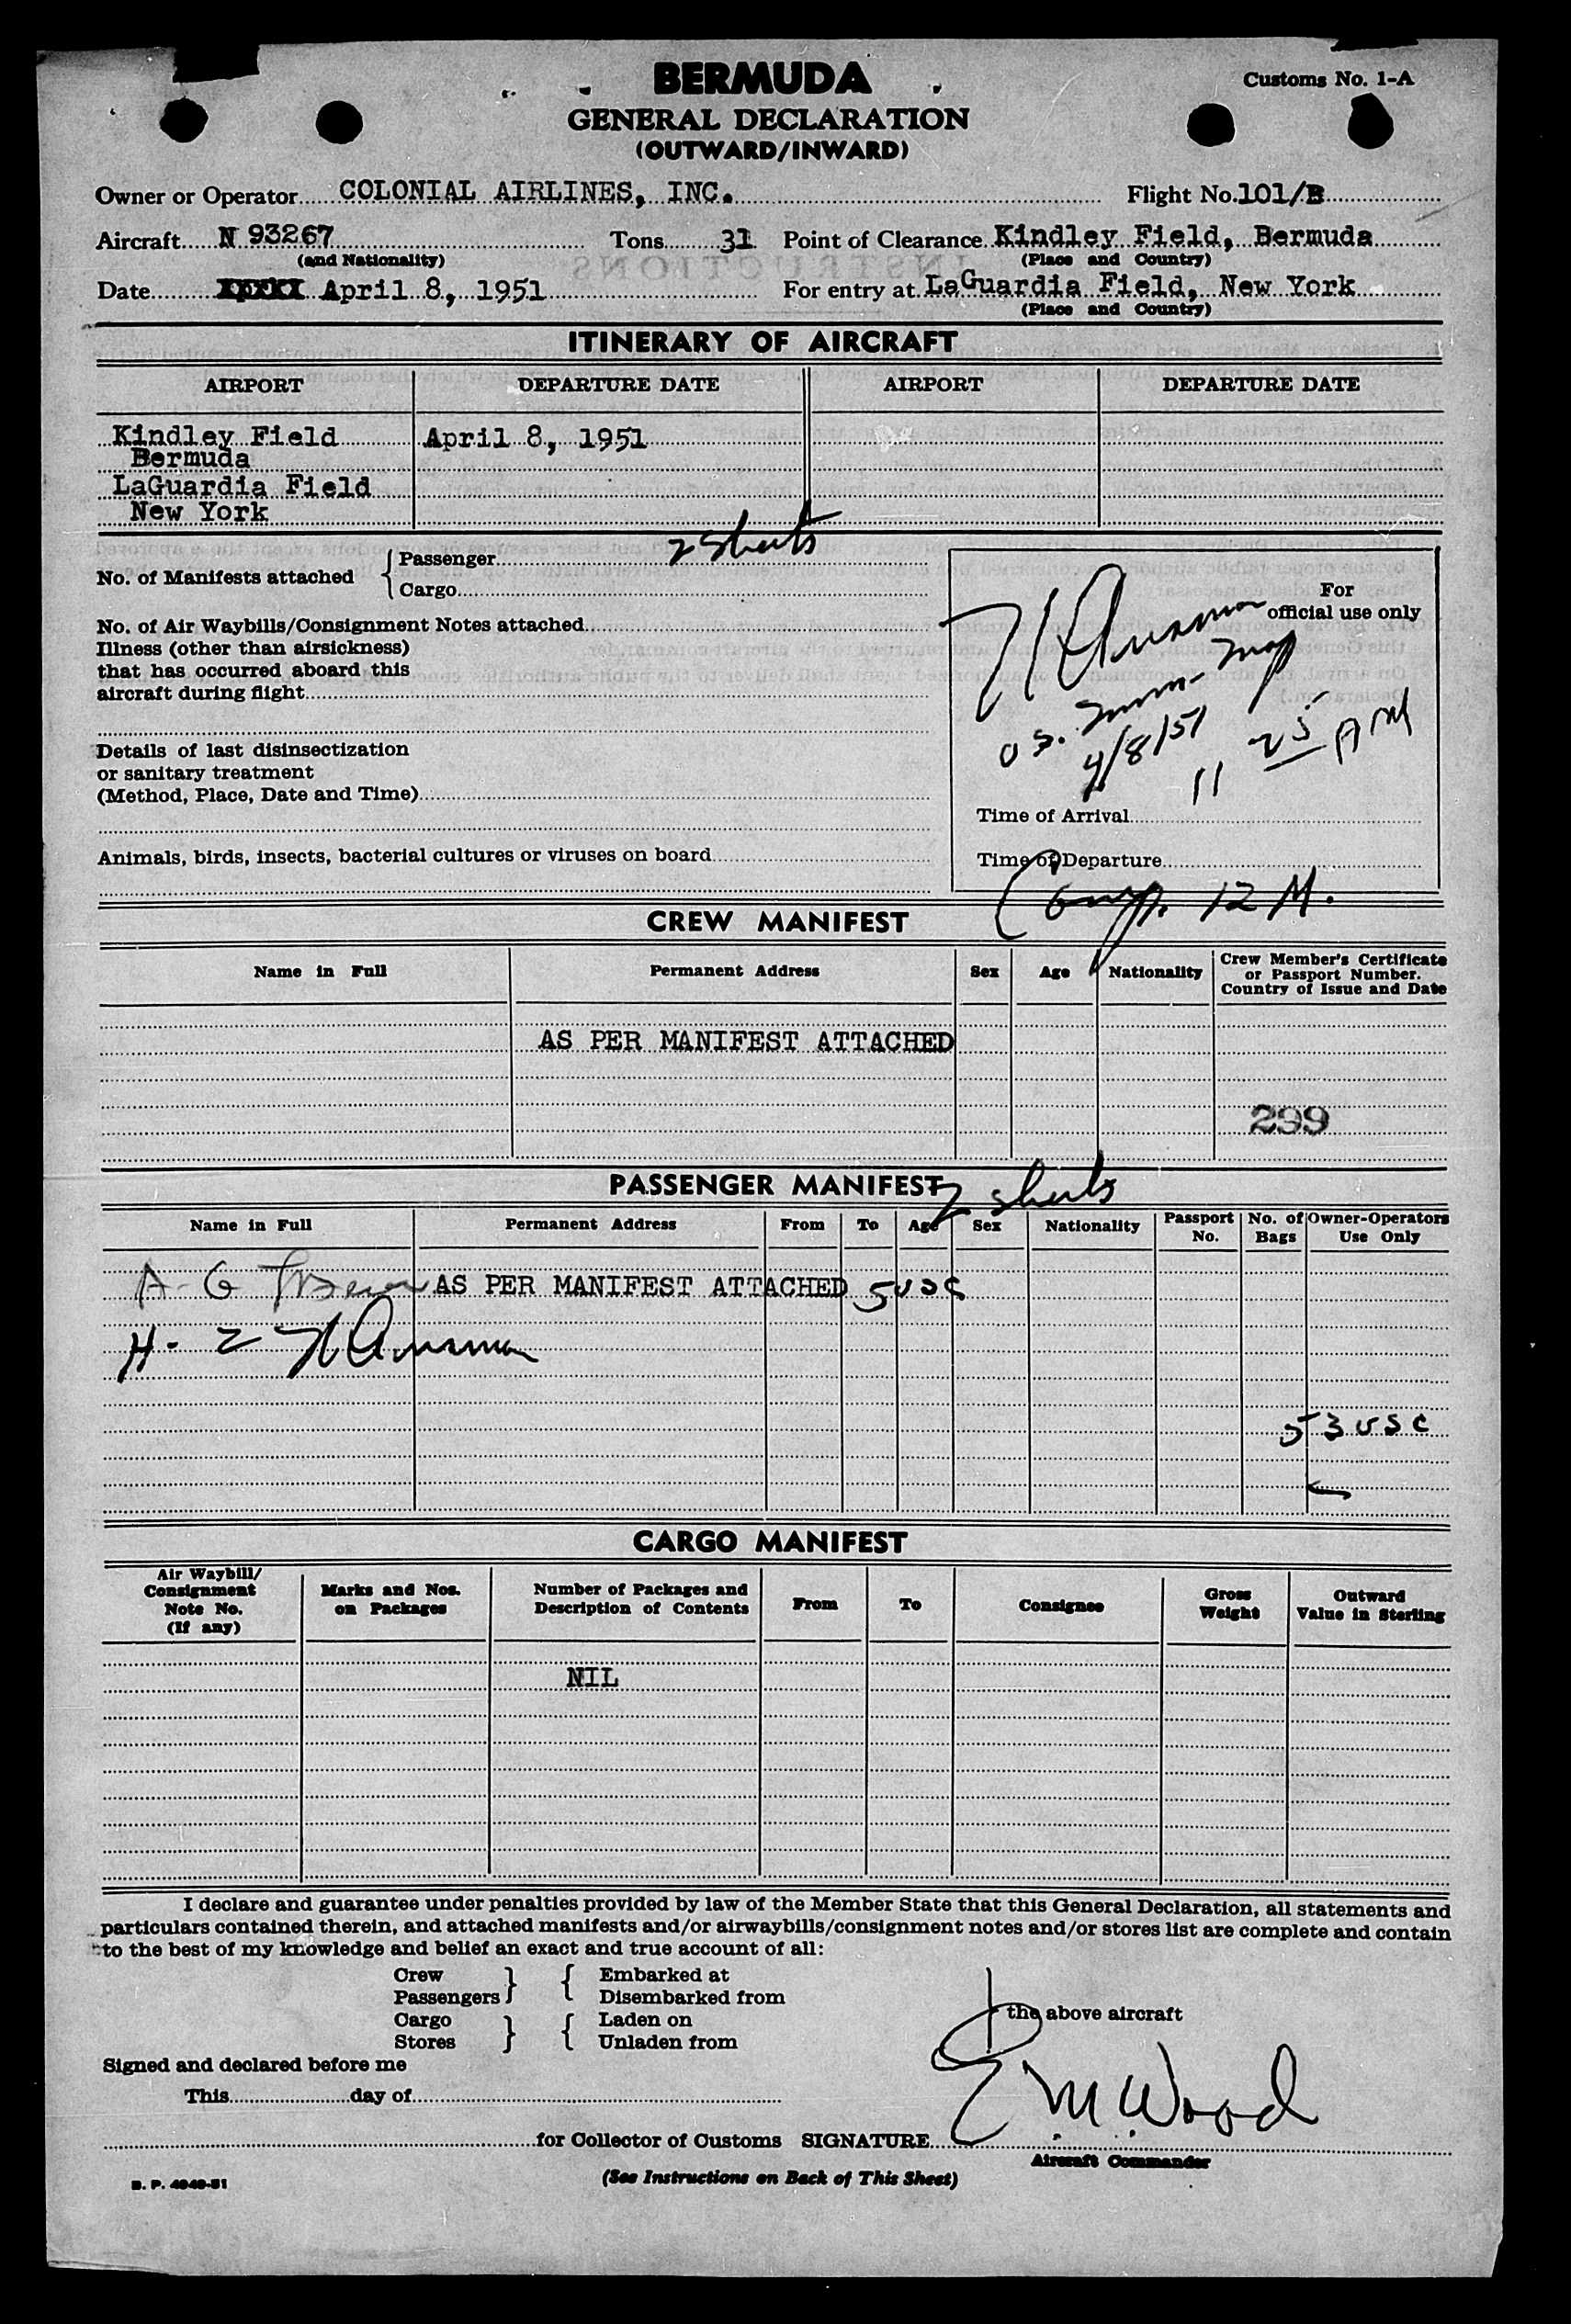 BERMUDA
Customs No. 1-A
GENERAL DECLARATION
(OUTWARD/INWARD)
Owner or Operator COLONIAL AIRLINES, INC. Flight No. 101/B
Aircraft N 93267 Tons 31 Point of Clearance Kindley Field, Bermuda
(and Nationality) (Place and Country)
Date April 8, 1951 For entry at LaGuardia Field, New York
(Place and Country)
ITINERARY OF AIRCRAFT
AIRPORT DEPARTURE DATE AIRPORT DEPARTURE DATE
Kindley Field April 8, 1951
Bermuda
LaGuardia Field
New York
No. of Manifests attached { Passenger 2 sheets
Cargo
For
official use only
No. of Air Waybills/Consignment Notes attached
Illness (other than airsickness)
that has occurred aboard this
aircraft during flight
Details of last disinsectization
or sanitary treatment
(Method, Place, Date and Time)
Animals, birds, insects, bacterial cultures or viruses on board
4/8/51
11 25 AM
Time of Arrival
Time of Departure
12 M.
CREW MANIFEST
Name in Full Permanent Address Sex Age Nationality Crew Member's Certificate
or Passport Number.
Country of Issue and Date
AS PER MANIFEST ATTACHED
299
PASSENGER MANIFEST 2 sheets
Name in Full Permanent Address From To Age Sex Nationality Passport No. No. of Bags Owner-Operators Use Only
A-G AS PER MANIFEST ATTACHED 5 USC
H-Z
53 USC
CARGO MANIFEST
Air Waybill/
Consignment
Note No.
(If any)
Marks and Nos.
on Packages
Number of Packages and
Description of Contents
From To Consignee
Gross
Weight
Outward
Value in Sterling
NIL
I declare and guarantee under penalties provided by law of the Member State that this General Declaration, all statements and
particulars contained therein, and attached manifests and/or airwaybills/consignment notes and/or stores list are complete and contain
to the best of my knowledge and belief an exact and true account of all:
Crew } { Embarked at
Passengers Disembarked from
the above aircraft
Cargo } { Laden on
Stores Unladen from
Signed and declared before me
This day of
E M Wood
for Collector of Customs SIGNATURE
Aircraft Commander
B. P. 4949-51
(See Instructions on Back of This Sheet)